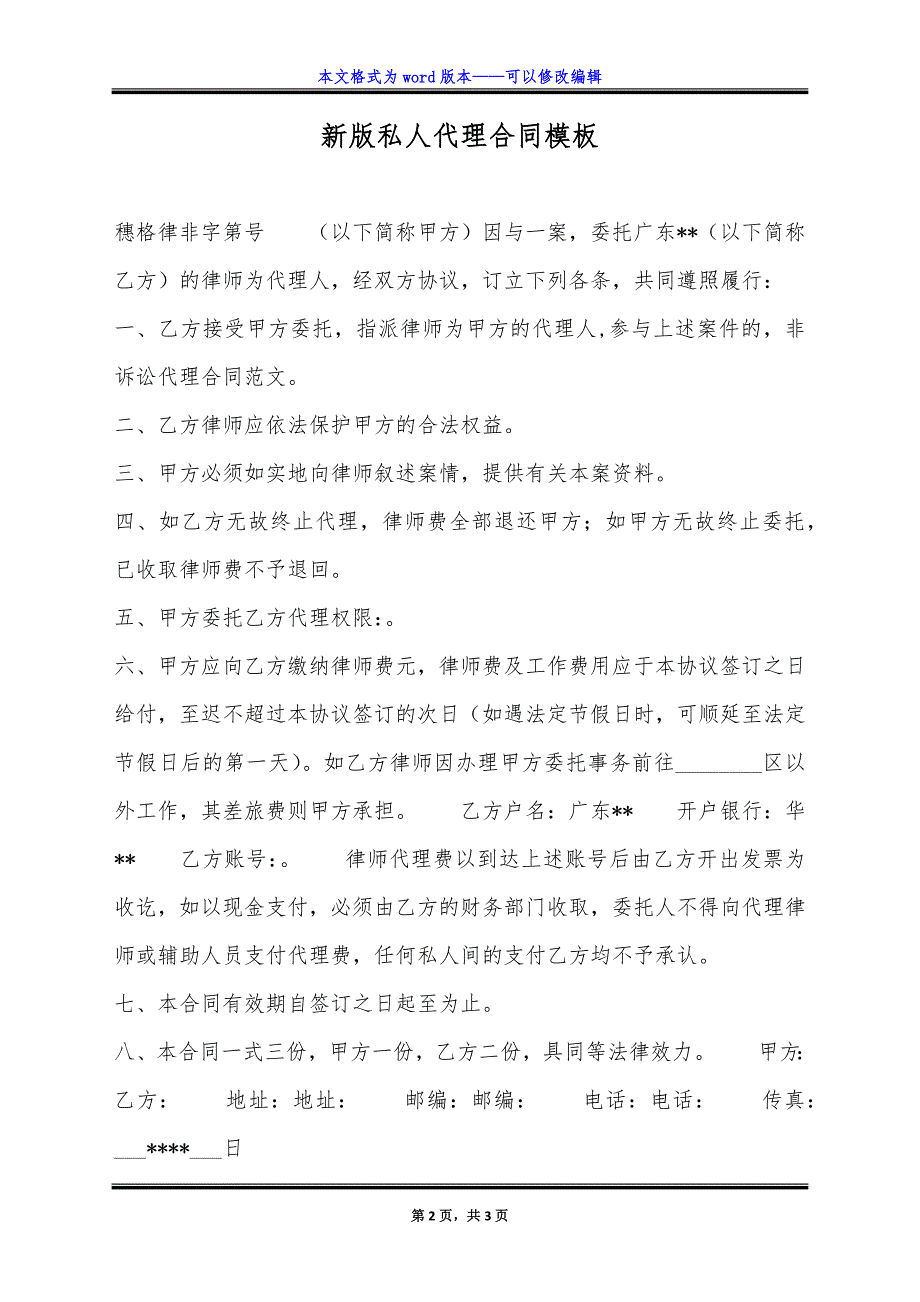 本文格式为 word 版本——可以修改编辑
新版私人代理合同模板
穗格律非字第号　　（以下简称甲方）因与一案，委托广东**（以下简称
乙方）的律师为代理人，经双方协议，订立下列各条，共同遵照履行：
一、乙方接受甲方委托，指派律师为甲方的代理人,参与上述案件的，非
诉讼代理合同范文。
二、乙方律师应依法保护甲方的合法权益。
三、甲方必须如实地向律师叙述案情，提供有关本案资料。
四、如乙方无故终止代理，律师费全部退还甲方；如甲方无故终止委托，
已收取律师费不予退回。
五、甲方委托乙方代理权限：。
六、甲方应向乙方缴纳律师费元，律师费及工作费用应于本协议签订之日
给付，至迟不超过本协议签订的次日（如遇法定节假日时，可顺延至法定
节假日后的第一天）。如乙方律师因办理甲方委托事务前往________区以
外工作，其差旅费则甲方承担。　　乙方户名：广东**　　开户银行：华
**　　乙方账号：。　　律师代理费以到达上述账号后由乙方开出发票为
收讫，如以现金支付，必须由乙方的财务部门收取，委托人不得向代理律
师或辅助人员支付代理费，任何私人间的支付乙方均不予承认。
七、本合同有效期自签订之日起至为止。
八、本合同一式三份，甲方一份，乙方二份，具同等法律效力。　　甲方：
乙方：　　地址：地址：　　邮编：邮编：　　电话：电话：　　传真：
___****___日
第 2 页，共 3 页